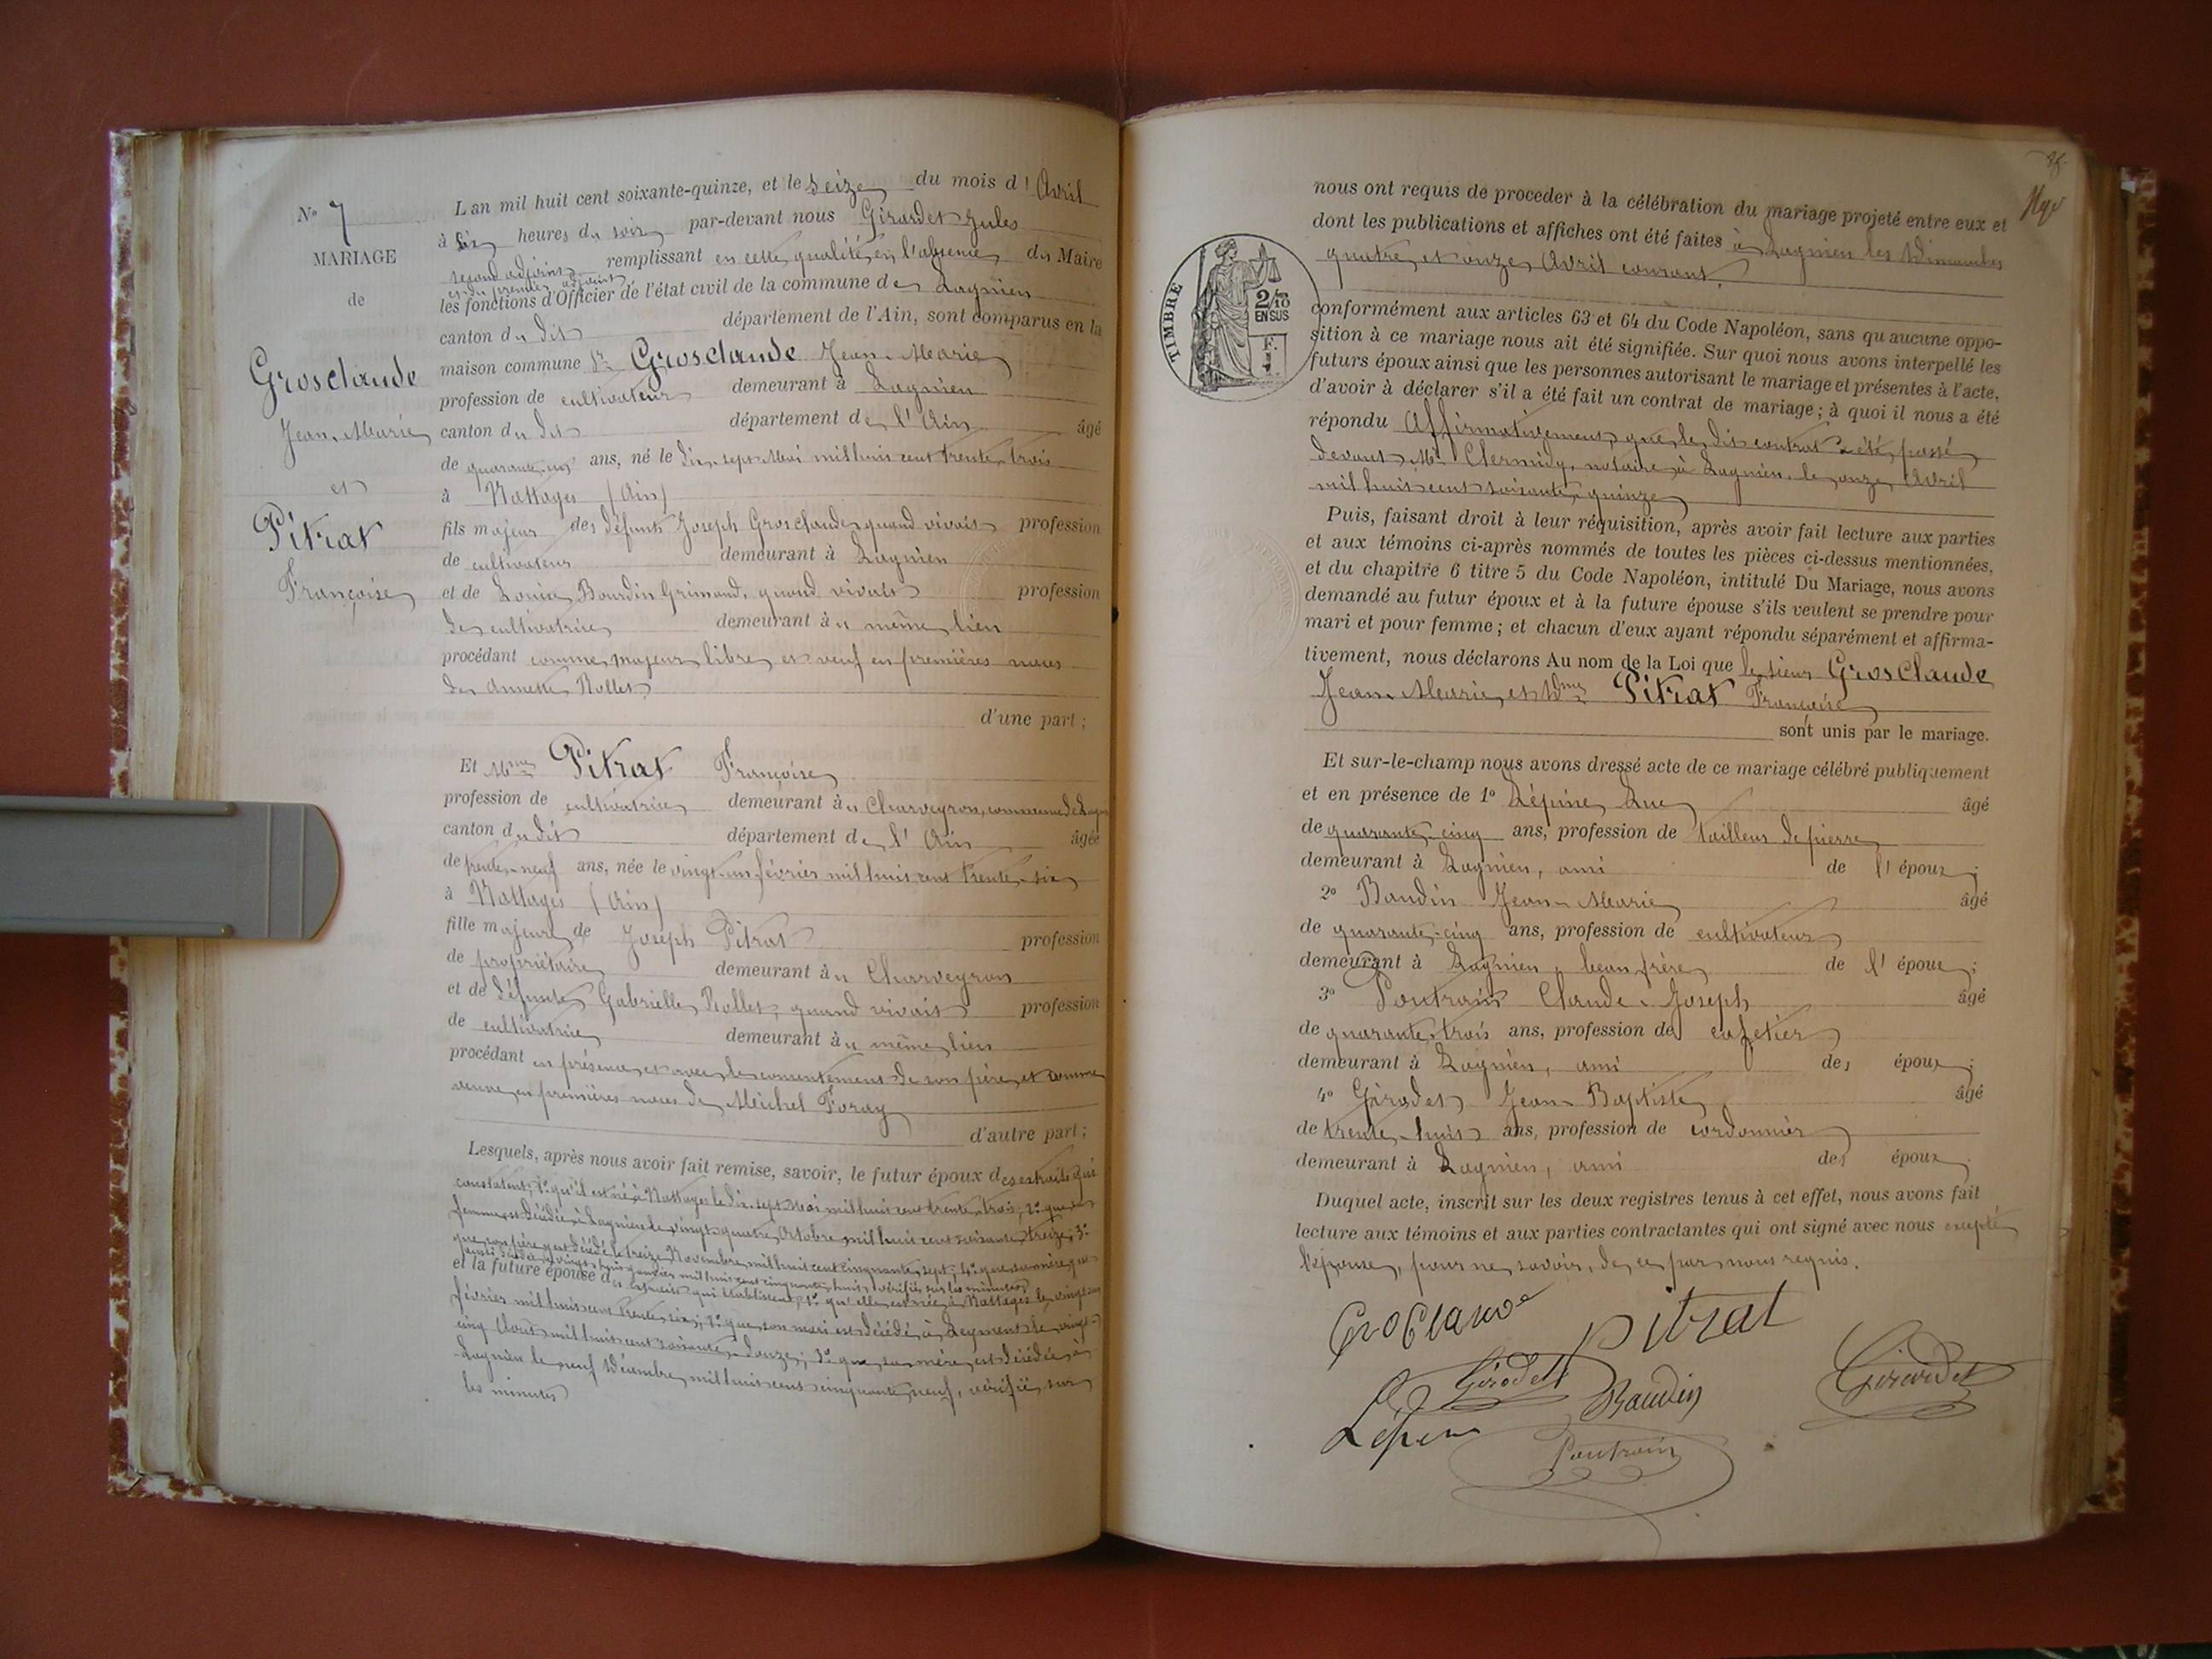 N° 7
MARIAGE
de
Grosclaude
Jean-Marie
et
Pitrat
Françoise
L'an mil huit cent soixante-quinze, et le seize du mois d'Avril
à six heures du soir par-devant nous Girardet Jules
second adjoint remplissant en cette qualité, en l'absence du Maire
et du premier adjoint
les fonctions d'Officier de l'état civil de la commune de Lagnieu
canton du dit département de l'Ain, sont comparus en la
maison commune Sr Grosclaude Jean-Marie
profession de cultivateur demeurant à Lagnieu
canton du dit département de l'Ain âgé
de quarante-un ans, né le dix-sept Mai mil huit cent trente-trois
à Nattages (Ain)
fils majeur des défunts Joseph Grosclaude, quand vivait profession
de cultivateur demeurant à Lagnieu
et de Louise Bourdin Grimaud, quand vivait profession
de cultivatrice demeurant au même lieu
procédant comme majeur libre et veuf en premières noces
de Annette Rollet
d'une part ;
Et Mme Pitrat Françoise
profession de cultivatrice demeurant à Charveyron, commune de Lagnieu
canton du dit département de l'Ain âgée
de trente-neuf ans, née le vingt-un février mil huit cent trente-six
à Nattages (Ain)
fille majeure de Joseph Pitrat profession
de propriétaire demeurant à Charveyron
et de défunte Gabrielle Rollet, quand vivait profession
de cultivatrice demeurant au même lieu
procédant en présence et avec le consentement de son père, et comme
veuve en premières noces de Michel Foray
d'autre part ;
Lesquels, après nous avoir fait remise, savoir, le futur époux des extraits qui
constatent, 1° qu'il est né à Nattages le dix-sept Mai mil huit cent trente-trois ; 2° que sa
femme est décédée à Lagnieu le vingt-quatre Octobre mil huit cent soixante-treize ; 3°
que son père y est décédé le treize Novembre mil huit cent cinquante-sept ; 4° que sa mère y est
aussi décédée le vingt-huit janvier mil huit cent cinquante-huit, vérifiés sur les minutes
et la future épouse des extraits qui établissent, 1° qu'elle est née à Nattages le vingt-un
février mil huit cent trente-six ; 2° que son mari est décédé à Leyment le vingt-
cinq Août mil huit cent soixante-douze ; 3° que sa mère est décédée à
Lagnieu le neuf Décembre mil huit cent cinquante-neuf, vérifiés sur
les minutes
nous ont requis de proceder à la célébration du mariage projeté entre eux et
dont les publications et affiches ont été faites à Lagnieu les Dimanches
quatre et onze Avril courant
TIMBRE
2/10
EN SUS
F.
1
conformément aux articles 63 et 64 du Code Napoléon, sans qu'aucune oppo-
sition à ce mariage nous ait été signifiée. Sur quoi nous avons interpellé les
futurs époux ainsi que les personnes autorisant le mariage et présentes à l'acte,
d'avoir à déclarer s'il a été fait un contrat de mariage ; à quoi il nous a été
répondu Affirmativement, que le dit contrat a été passé
devant Me Chermidy, notaire à Lagnieu, le onze Avril
mil huit cent soixante-quinze
Puis, faisant droit à leur réquisition, après avoir fait lecture aux parties
et aux témoins ci-après nommés de toutes les pièces ci-dessus mentionnées,
et du chapitre 6 titre 5 du Code Napoléon, intitulé Du Mariage, nous avons
demandé au futur époux et à la future épouse s'ils veulent se prendre pour
mari et pour femme ; et chacun d'eux ayant répondu séparément et affirma-
tivement, nous déclarons Au nom de la Loi que le sieur Grosclaude
Jean-Marie, et Dme Pitrat Françoise
sont unis par le mariage.
Et sur-le-champ nous avons dressé acte de ce mariage célébré publiquement
et en présence de 1° Lépine Luc âgé
de quarante-cinq ans, profession de tailleur de pierre
demeurant à Lagnieu, ami de l'époux ;
2° Baudin Jean-Marie âgé
de quarante-cinq ans, profession de cultivateur
demeurant à Lagnieu, beau frère de l'époux ;
3° Poutrain Claude-Joseph âgé
de quarante-trois ans, profession de cafetier
demeurant à Lagnieu, ami des époux ;
4° Girodet Jean Baptiste âgé
de trente-huit ans, profession de cordonnier
demeurant à Lagnieu, ami des époux
Duquel acte, inscrit sur les deux registres tenus à cet effet, nous avons fait
lecture aux témoins et aux parties contractantes qui ont signé avec nous excepté
l'épouse, pour ne savoir, de ce par nous requis.
Groclaude
Pitrat
Girodet
Baudin
Girardet
Lépine
Poutrain